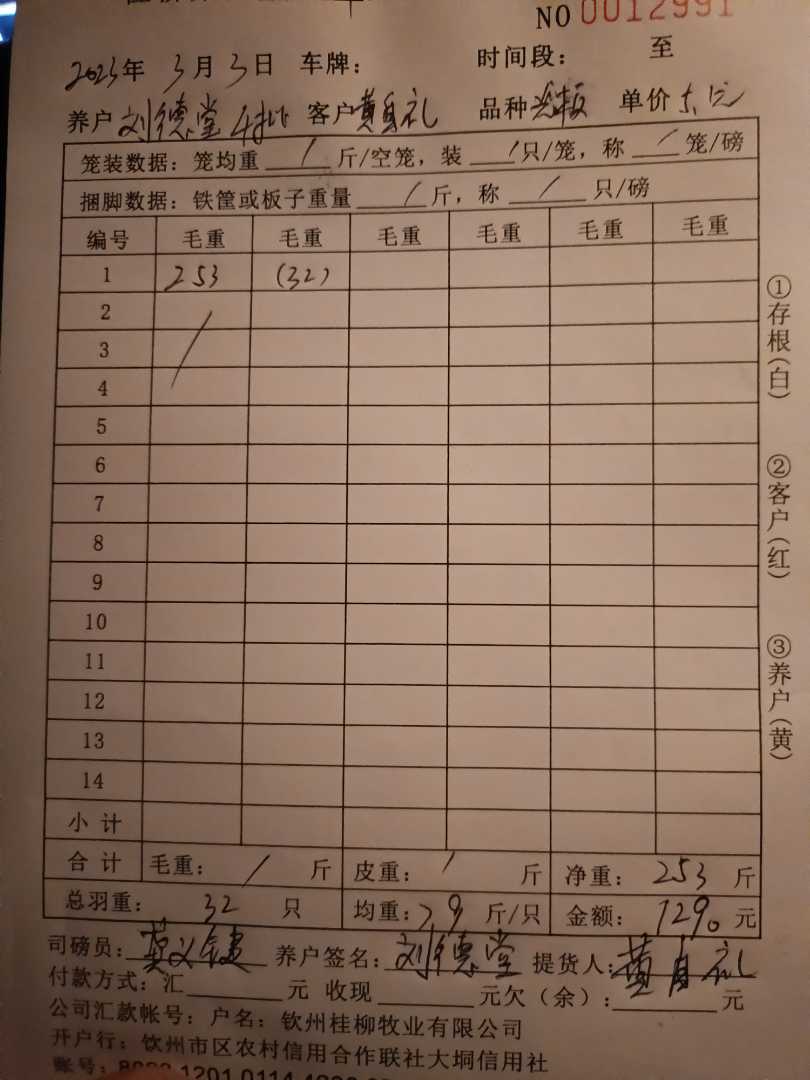 NO 0012991
2023年 3月3日 车牌： 时间段： 至
养户 刘德堂 客户 黄身礼 品种 单价 5.1元
笼装数据：笼均重 / 斤/空笼，装 / 只/笼，称 / 笼/磅
捆脚数据：铁筐或板子重量 / 斤，称 / 只/磅
编号 毛重 毛重 毛重 毛重 毛重 毛重
1 253 (32)
2
3
4
5
6
7
8
9
10
11
12
13
14
小计
合计 毛重： / 斤 皮重： / 斤 净重： 253 斤
总羽重： 32 只 均重：7.9 斤/只 金额： 1290 元
司磅员： 养户签名：刘德堂 提货人：黄身礼
付款方式：汇 元 收现 元欠（余）： 元
公司汇款帐号：户名：钦州桂柳牧业有限公司
开户行：钦州市区农村信用合作联社大垌信用社
账号：
①存根(白)
②客户(红)
③养户(黄)